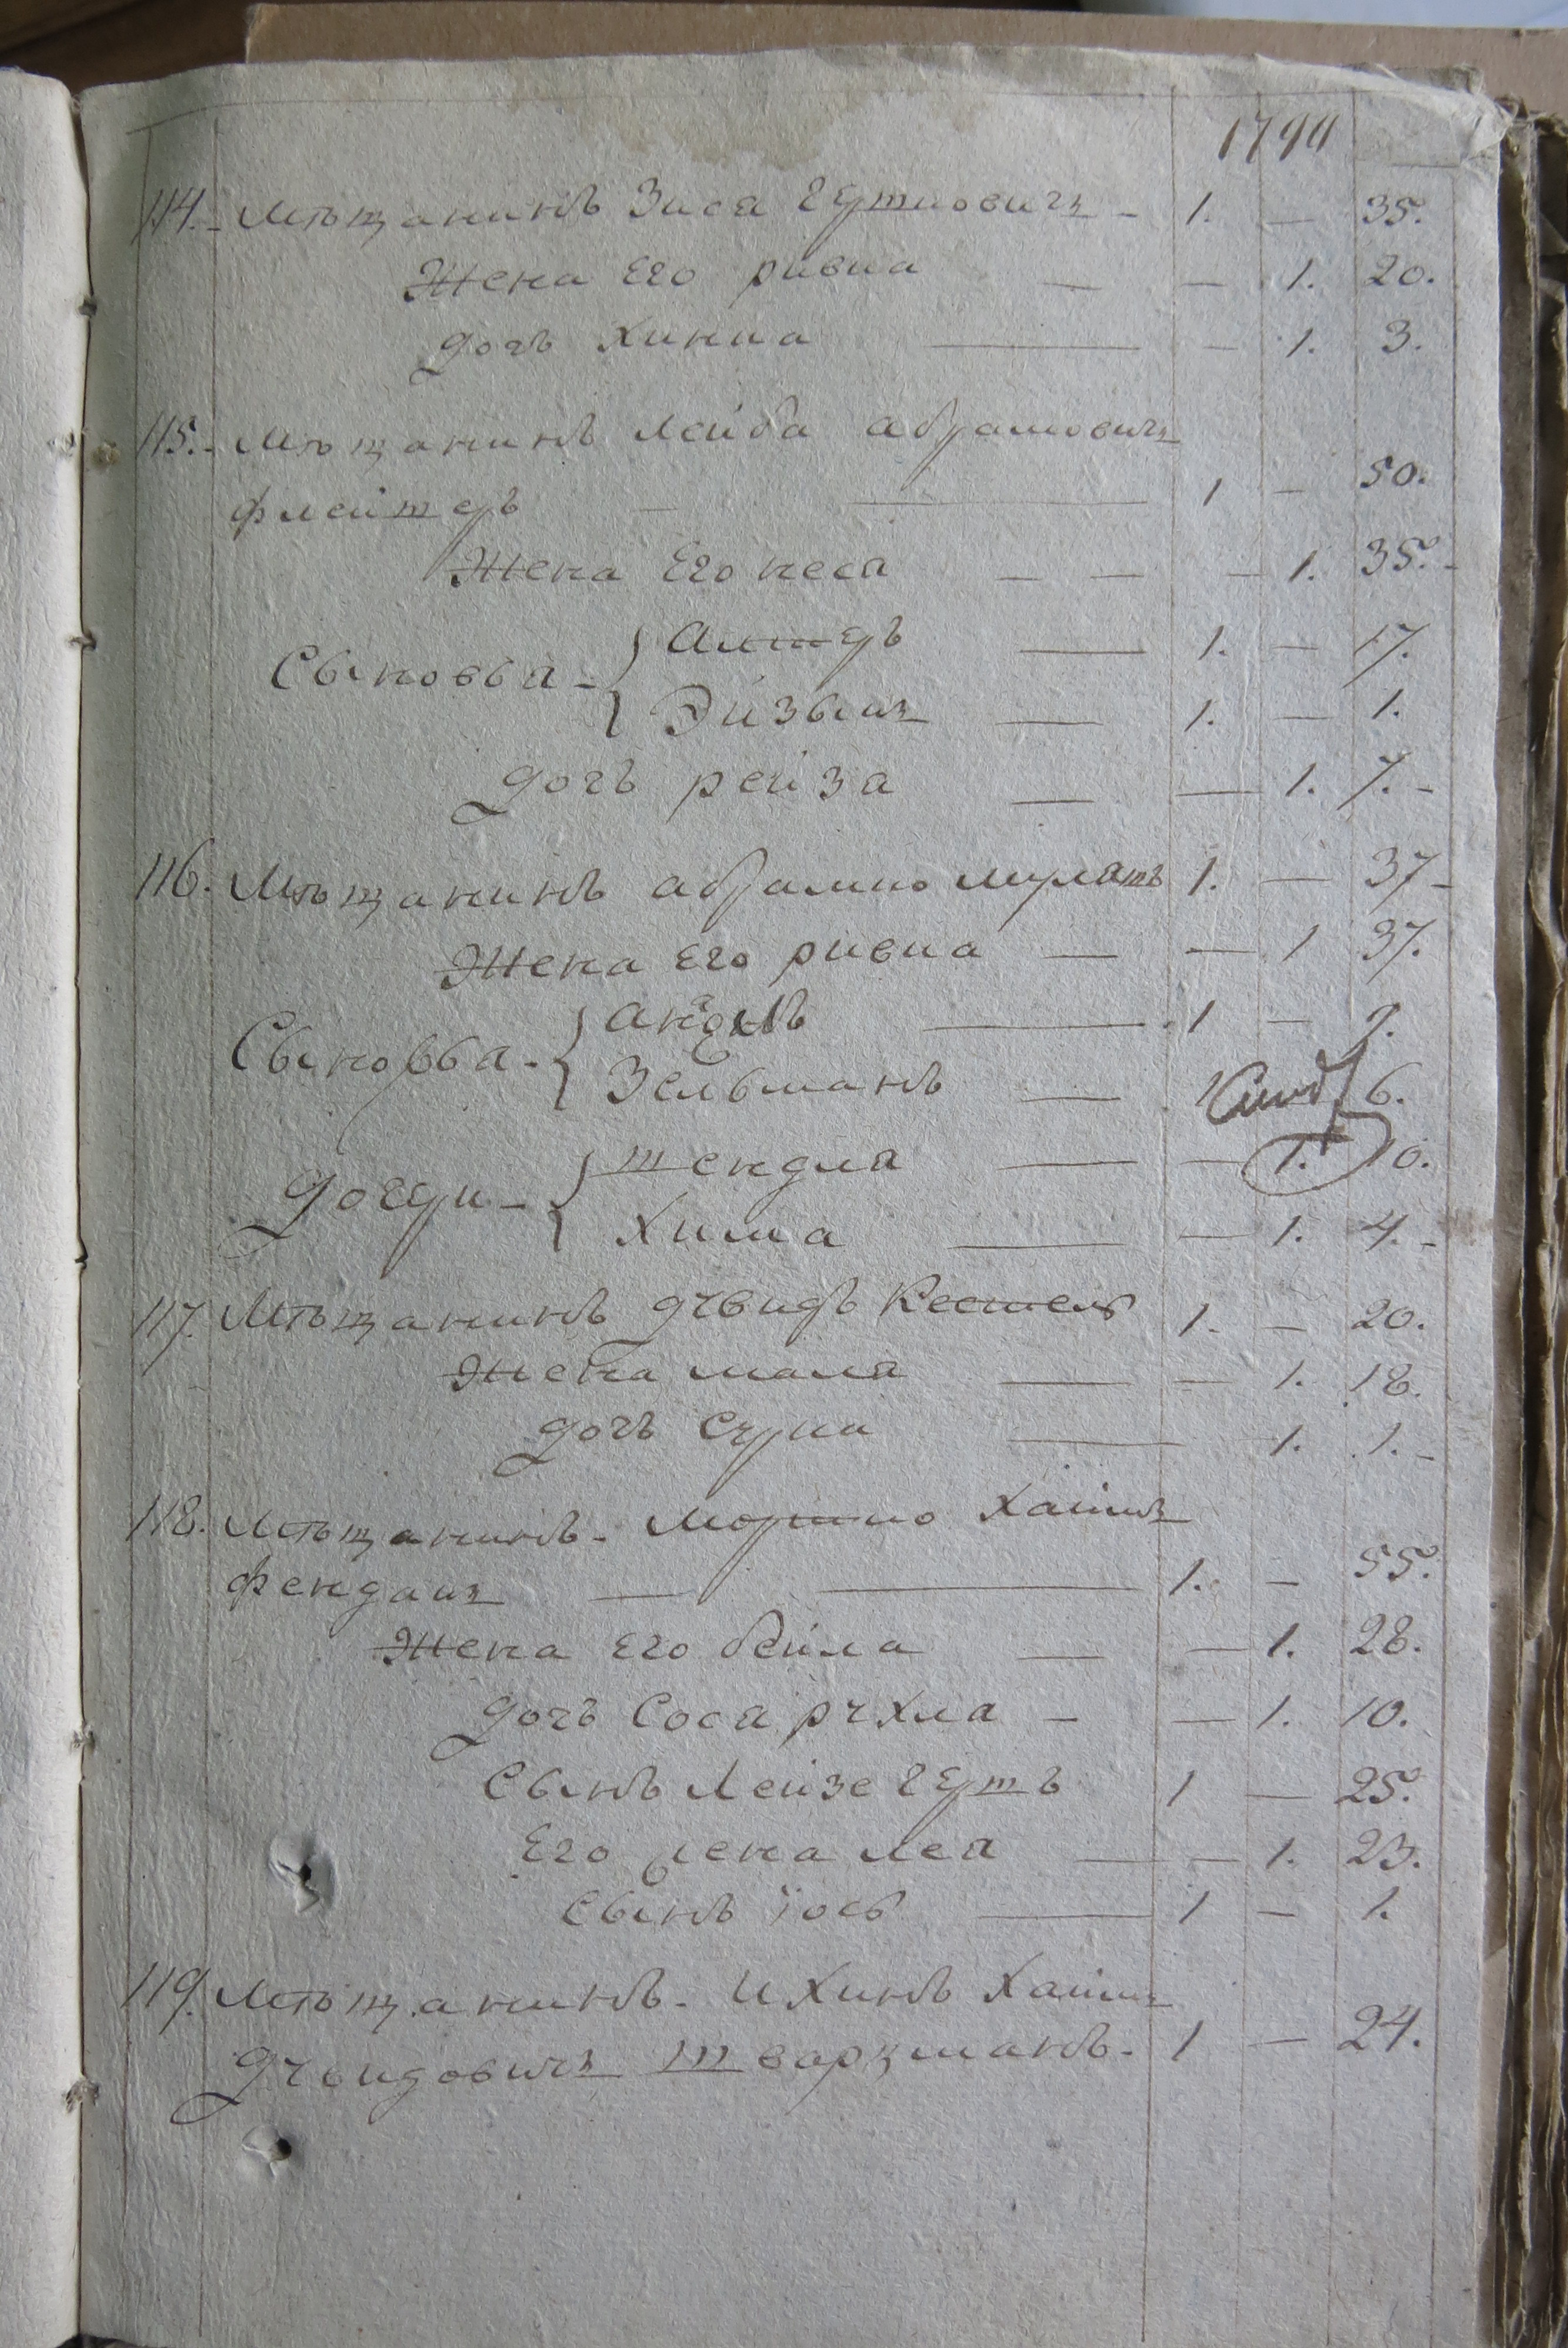 1794
114. Мѣщанинъ Зися Гершковичъ 1. — 35.
Жена Его ривка — — 1. 20.
дочь Хинка — — 1. 3.
115. Мѣщанинъ Лейба абрамовичъ
флейшеръ — 1 — 50.
Жена Его песя — — — 1. 35.
Сыновья { Алтеръ — 1. — 17.
Эйзыкъ — 1. — 1.
дочь рейза — — 1. 7.
116. Мѣщанинъ абрамко 1. — 37
Жена Его ривка — — 1 37.
Сыновья { — 1 — 9.
Зельманъ — 6.
дочери { шендля — — 1. 10.
Хима — — 1. 4.
117. Мѣщанинъ Дувидъ 1. — 20.
Жена маля — — 1. 18.
дочь Сурка — 1. 1.
118. Мѣщанинъ. Мошко Хаимъ
— 1. — 55.
Жена Его бейла — — 1. 28.
дочь Сося рухла — — 1. 10.
Сынъ Лейзегершъ 1 — 25.
Его жена лея — — 1. 23.
Сынъ іось — 1 — 1.
119. Мѣщанинъ. Хаимъ
Дувидовичъ шварцманъ. 1 — 24.